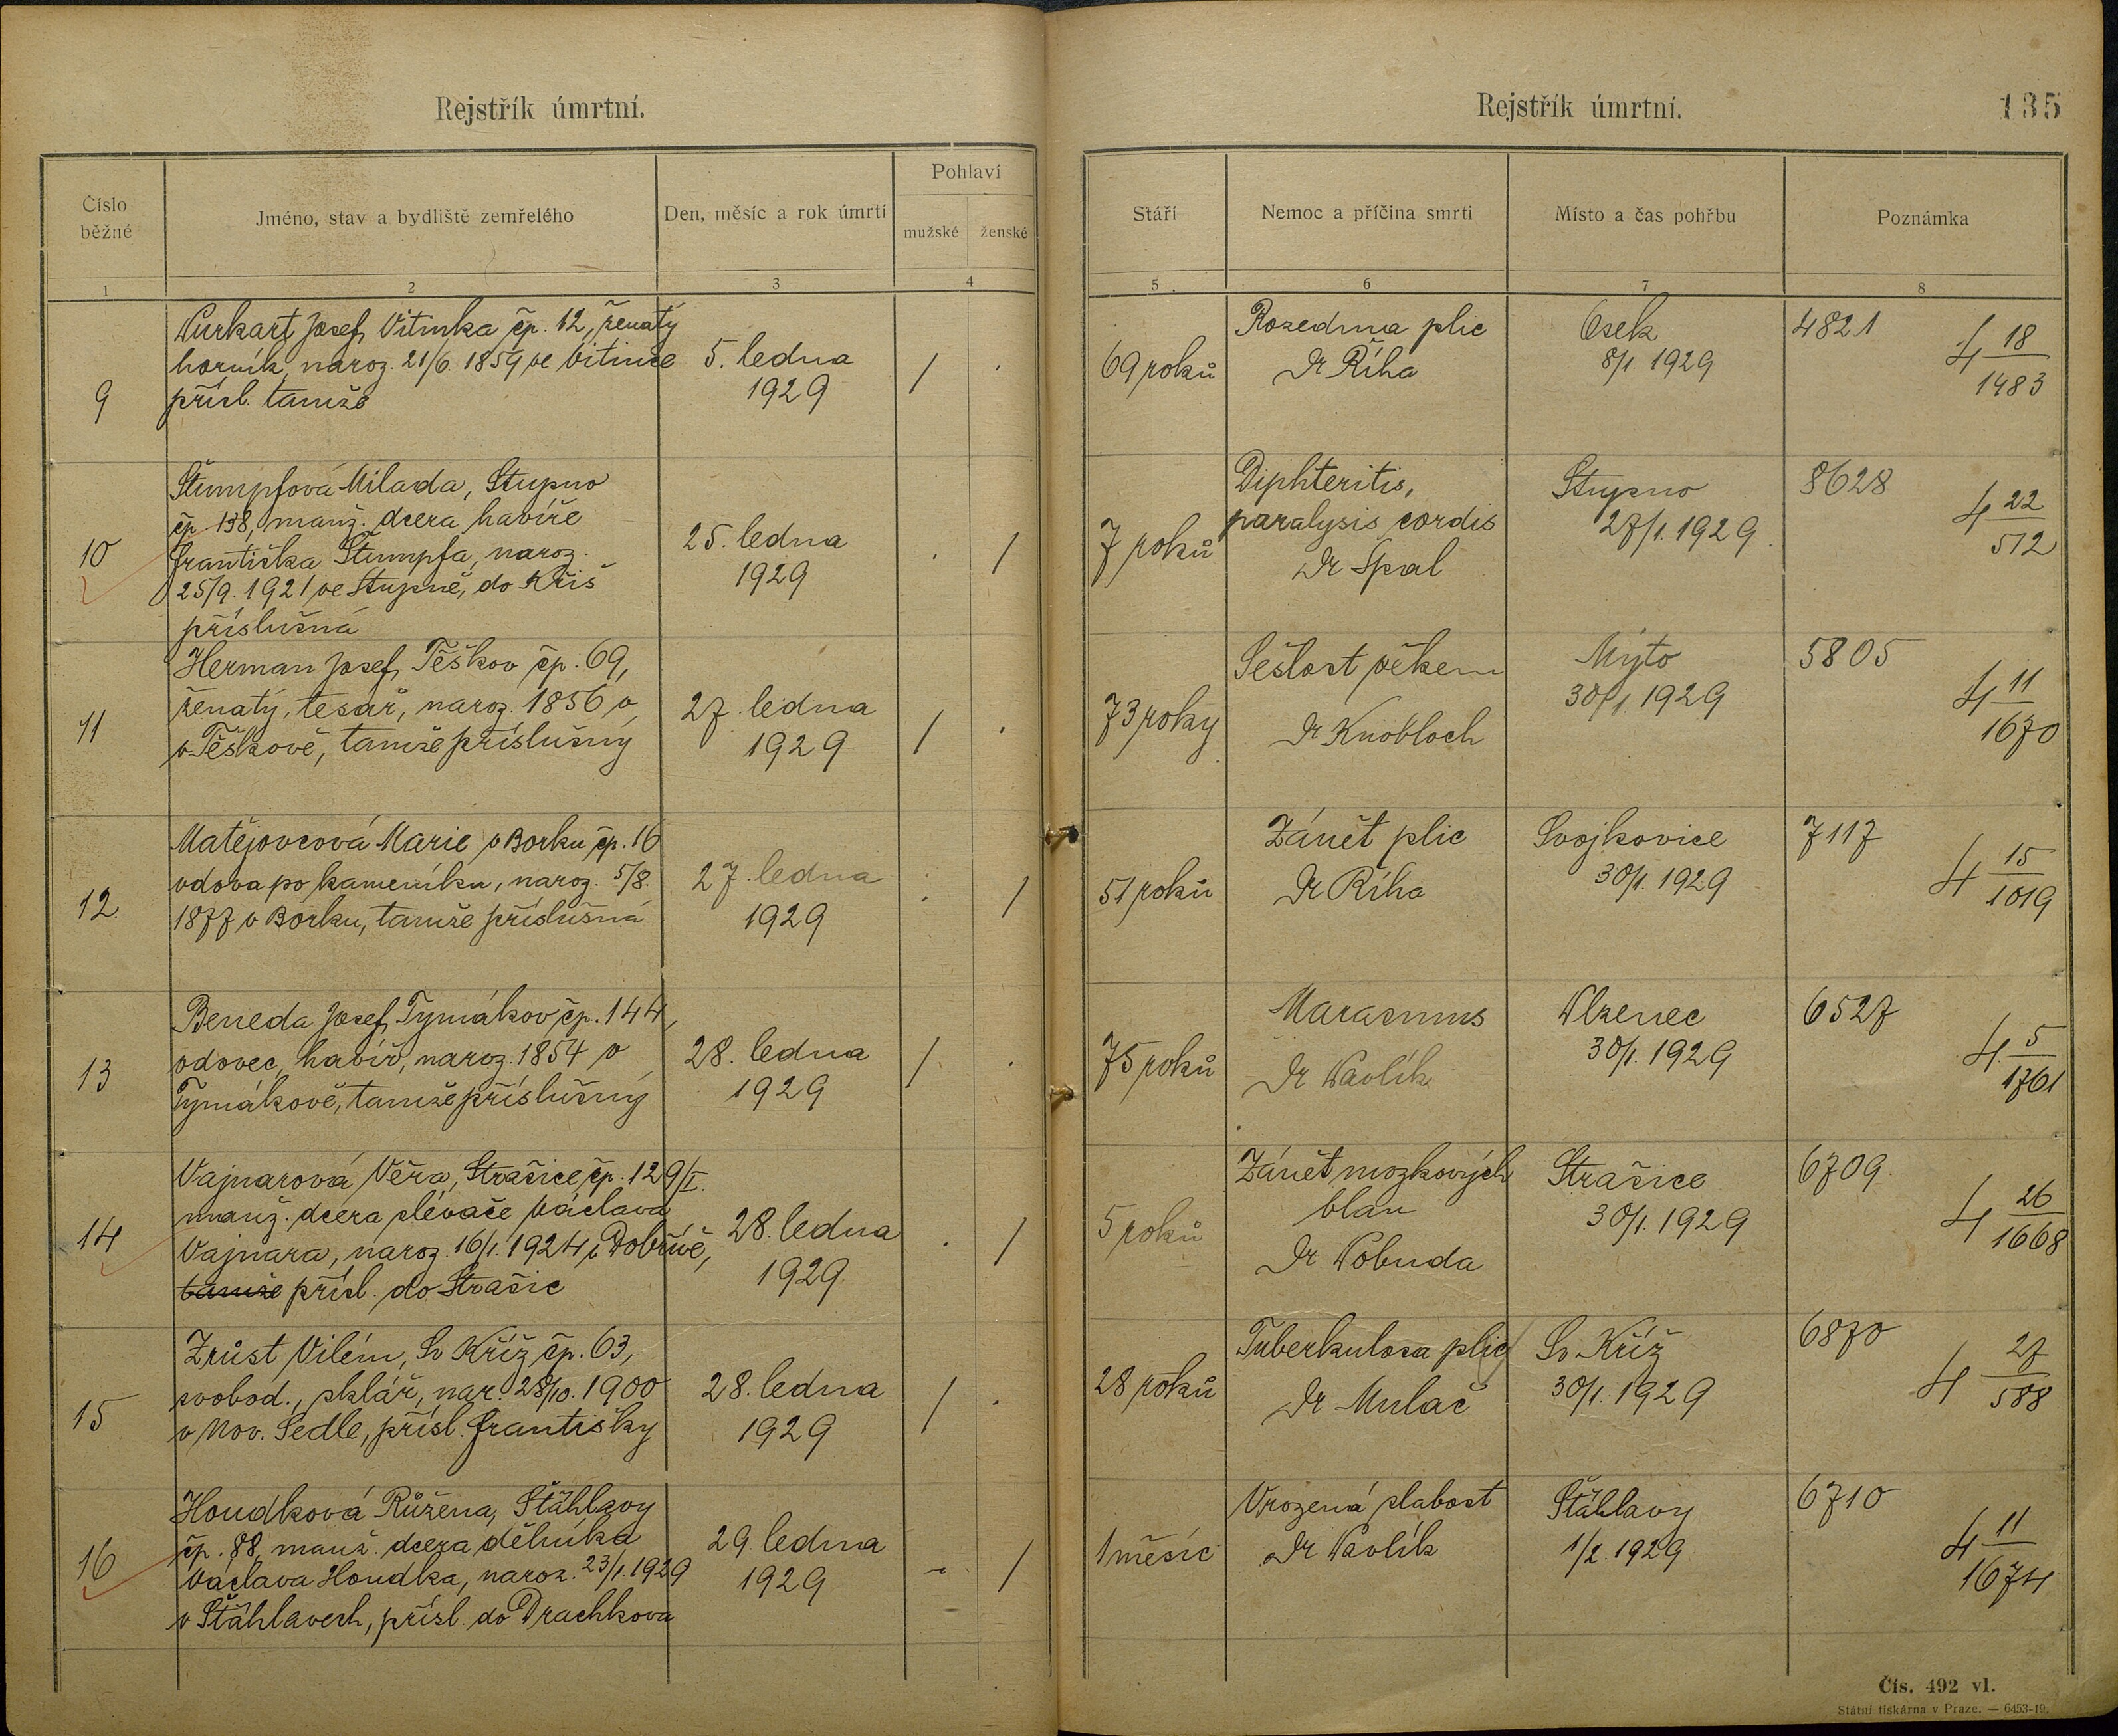 Rejstřík úmrtní.
Číslo běžné
Jméno, stav a bydliště zemřelého
Den, měsíc a rok úmrtí
Pohlaví
mužské
ženské
1
2
3
4
9
Josef, Vitinka čp. 12, ženatý
horník, naroz. 21/6. 1859 ve Vitince
přísl. tamže
5. ledna
1929
/
.
10
Štumpfová Milada, Stupno
čp 138, manž. dcera havíře
Františka Štumpfa, naroz.
25/9. 1921 ve Stupně, do Kříš
příslušná
25. ledna
1929
.
/
11
Herman Josef, Těškov čp. 69,
ženatý, tesař, naroz. 1856 v
v Těškově, tamže příslušný
27. ledna
1929
/
.
12.
Matějovcová Marie v Borku čp. 16
vdova po kameníku, naroz. 5/8.
1877 v Borku, tamže příslušná
27. ledna
1929
.
/
13
Beneda Josef, Tymákov čp. 144,
vdovec, havíř, naroz. 1854 v
Tymákově, tamže příslušný
28. ledna
1929
/
.
14
Vajnarová Věra, Strašice čp. 129/I.
manž. dcera slévače Václava
Vajnara, naroz. 16/1. 1924 v Dobřívě,
tamže přísl. do Strašic
28. ledna
1929
.
/
15
Zrůst Vilém, Sv Kříž čp. 63,
svobod., sklář, nar. 28/10. 1900
v Nov. Sedle, přísl. Františky
28. ledna
1929
/
.
16
Houdková Růžena, Štáhlavy
čp. 88, manž. dcera dělníka
Václava Houdka, naroz. 23/1. 1929
v Štáhlavech, přísl. do Drachkova
29. ledna
1929
-
/
Rejstřík úmrtní.
135
Stáří
Nemoc a příčina smrti
Místo a čas pohřbu
Poznámka
5
6
7
8
69 roků
Rozedma plic
Dr Říha
Osek
8/1. 1929
4821
4 18/1483
7 roků
Diphteritis,
paralysis cordis
Dr Špal
Stupno
27/1. 1929
8628
4 22/512
73 roky
Sešlost věkem
Dr Knobloch
Mýto
30/1. 1929
5805
4 11/1670
51 roků
Zánět plic
Dr Říha
Svojkovice
30/1. 1929
7117
4 15/1019
75 roků
Marasmus
Dr Pavlík
Plzenec
30/1. 1929
6527
4 5/1761
5 roků
Zánět mozkových
blan
Dr Pobuda
Strašice
30/1. 1929
6709
4 26/1668
28 roků
Tuberkulosa plic
Dr Mulač
Sv Kříž
30/1. 1929
6870
4 27/588
1 měsíc
Vrozená slabost
Dr Pavlík
Štáhlavy
1/2. 1929
6710
4 11/1674
Čís. 492 vl.
Státní tiskárna v Praze. — 6453-19.